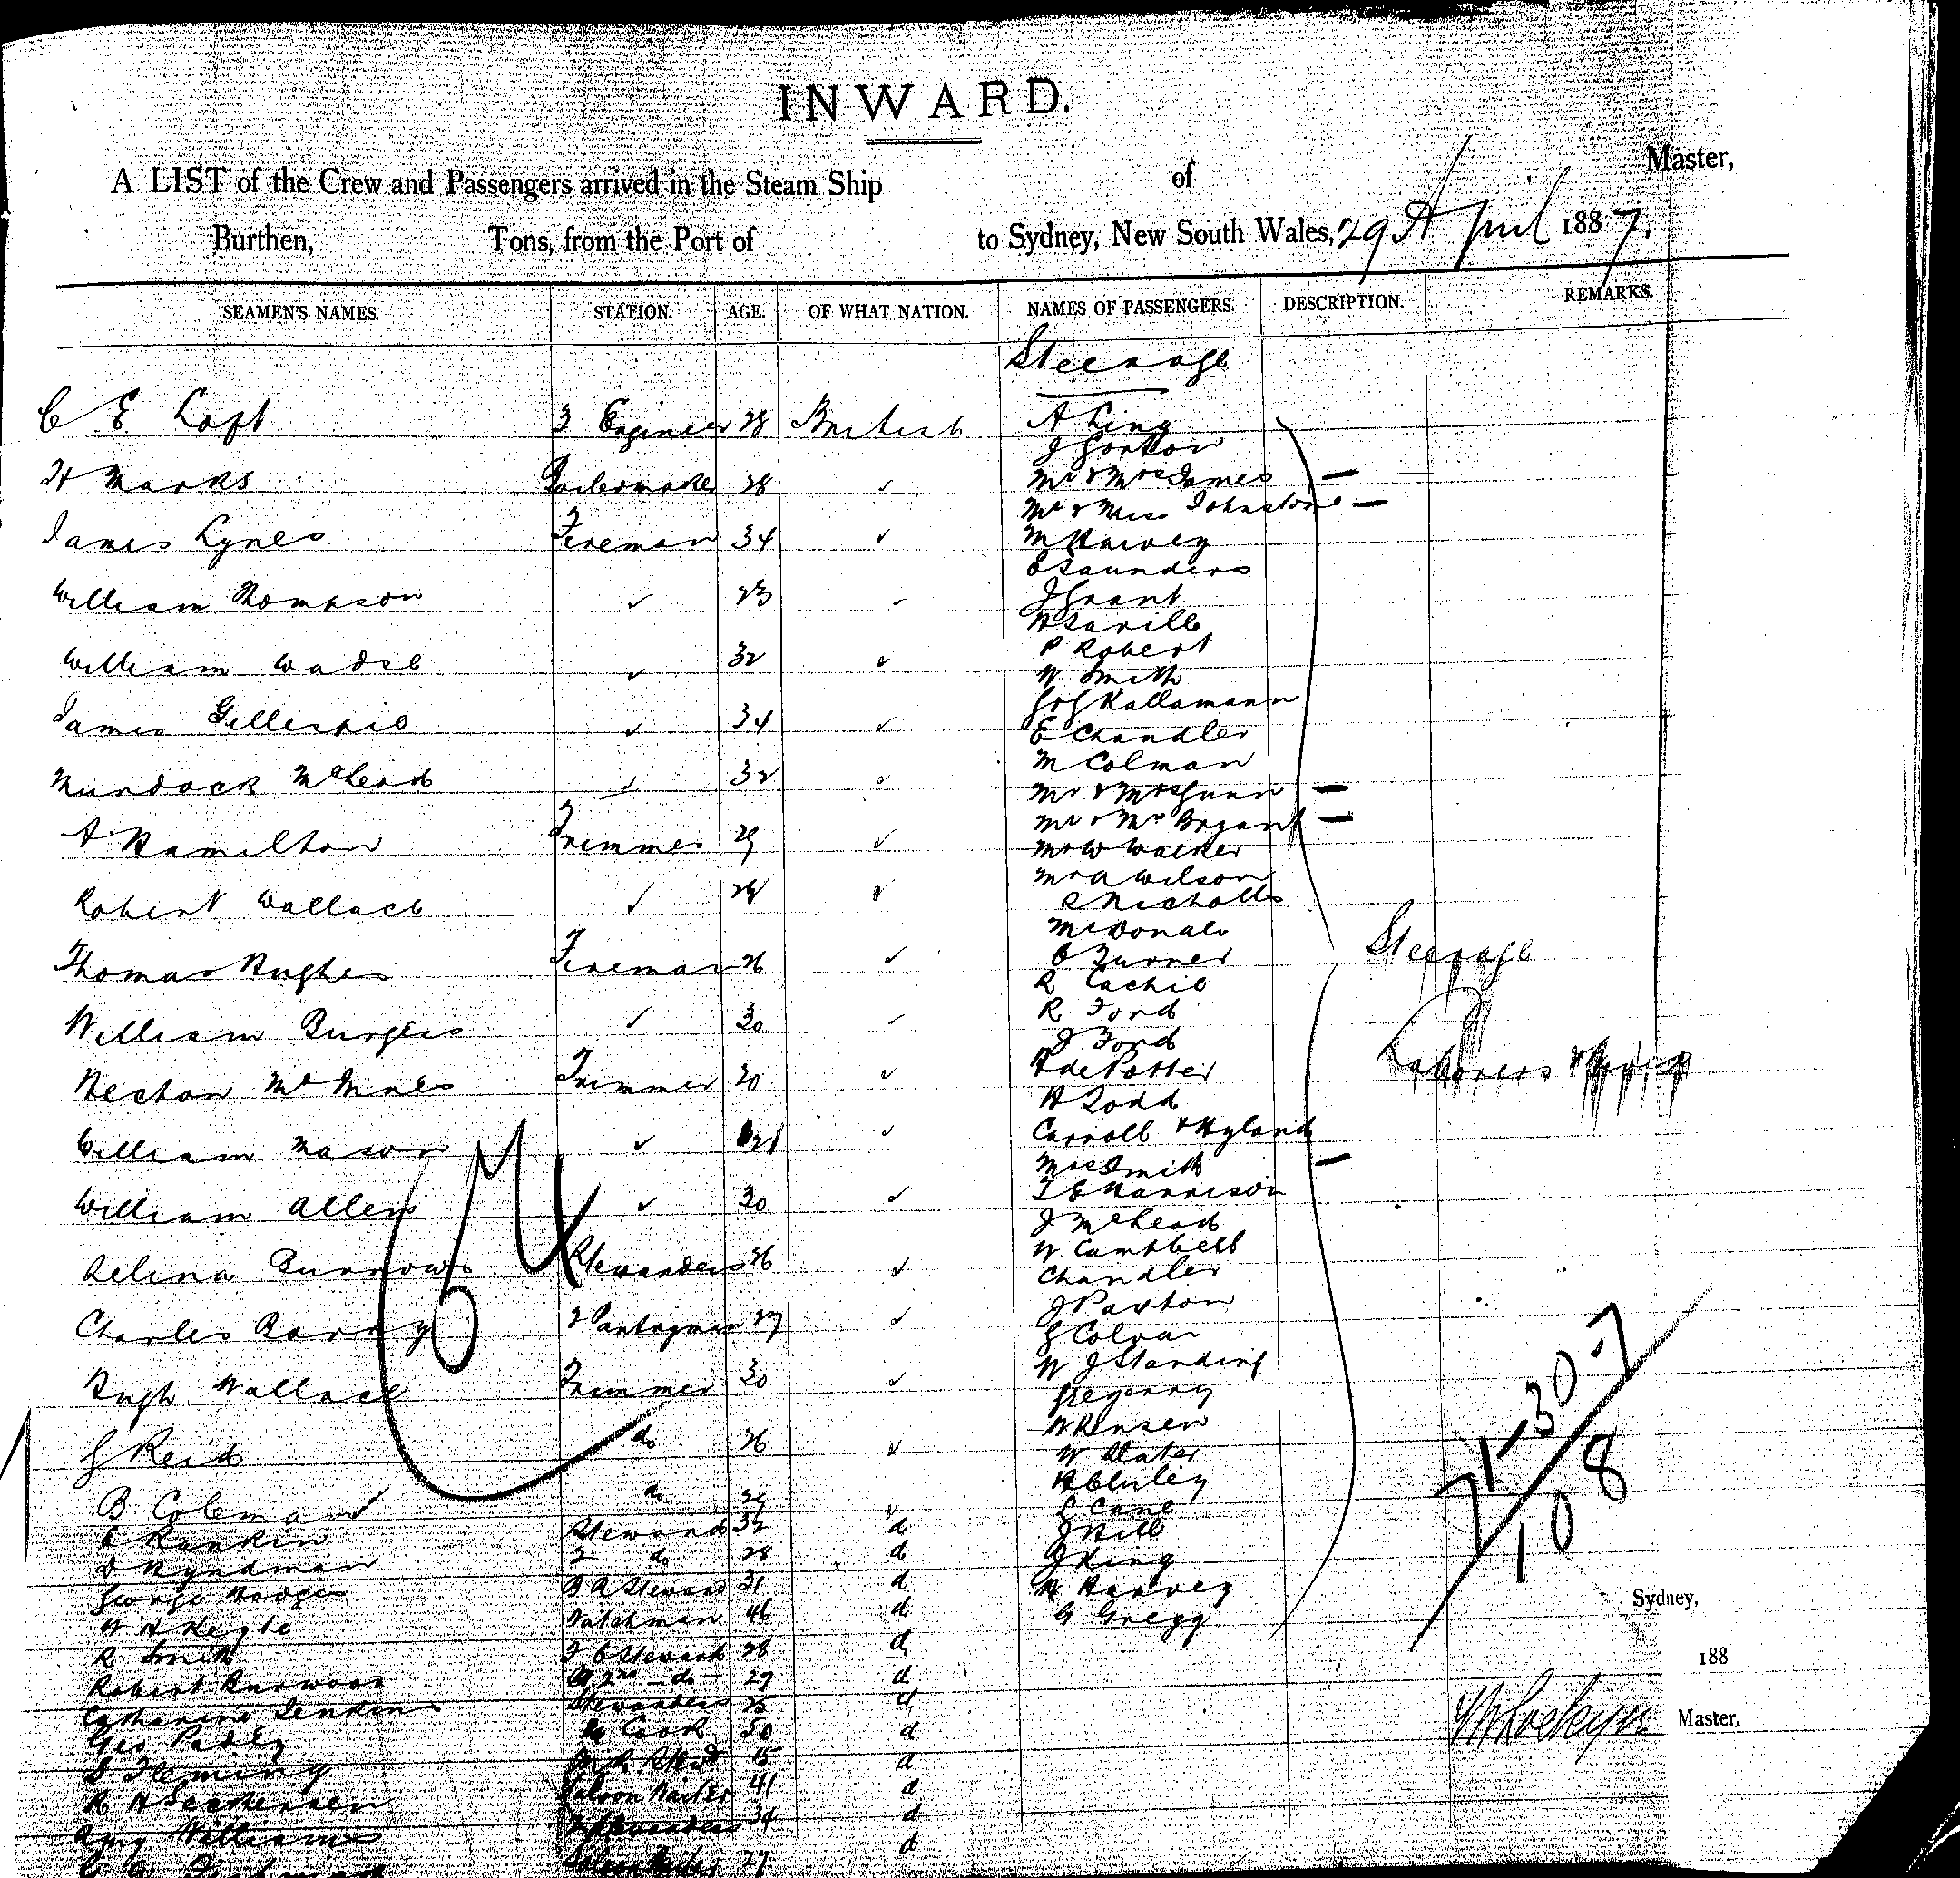 INWARD.
A LIST of the Crew and Passengers arrived in the Steam Ship of Master,
Burthen, Tons, from the Port of to Sydney, New South Wales, 29 April 1887.
SEAMEN'S NAMES. STATION. AGE. OF WHAT NATION. NAMES OF PASSENGERS. DESCRIPTION. REMARKS.
Steerage
C E Loft 3 Engineer 28 British A King
J Gorton
H Marks Boilermaker 28 ✓ Mr & Mrs James —
Mr & Miss Johnstone —
James Lynes Fireman 34 ✓ M Harvey
E Saunders
William Thompson ✓ 23 ✓ J Grant
H Saville
William Wadse ✓ 32 ✓ P Robert
W Smith
James Gillespie ✓ 34 ✓ Kallamann
E Chandler
Murdock McLeod ✓ 32 M Colman
Mr & Mrs Gunn —
A Hamilton Trimmer 29 ✓ Mr & Mrs Bryant —
Mr W Walker
Robert Wallace ✓ ✓ Mr A Wilson
C Nicholls
McDonald
Thomas Hughes Fireman 26 ✓ C Turner Steerage
R Cachio
William Burgess ✓ 30 ✓ R Ford
J Ford
Hector Trimmer 20 ✓ H de Potter Laborers
H Todd
William Mason ✓ 21 ✓ Carroll & Hyland
Mrs Smith —
William Allen ✓ 30 ✓ T E Harrison
J McLeod
W Campbell
Selina Burrows Stewardess 26 ✓ Chandler
J Paxton
Charles Barry 2 Pantryman 27 ✓ G Colvan
W J Standing
Hugh Wallace Trimmer 30 ✓ Gregenny
W Hensen
G Reid do 26 ✓ W Slater
H Cluley
B Coleman ✓ do ✓ L Cane
E Rankin Steward 32 d J Hill
D Hyndman 2 do 28 d J King
George Hodges B R Steward 31 d H Harvey
W H Keyte Watchman 46 d G Gregg
R Smith F C Steward 28 d
Robert Burwood 2nd do 27 d
Catharine Jenkins Stewardess 25 d
Geo Padley Cook 50 d
S Fleming 15 d
R H Saloon Waiter 41 d
Amy Williams Stewardess 34 d
Saloon Waiter 27 d
71-30-7
108
Sydney,
188
Master.